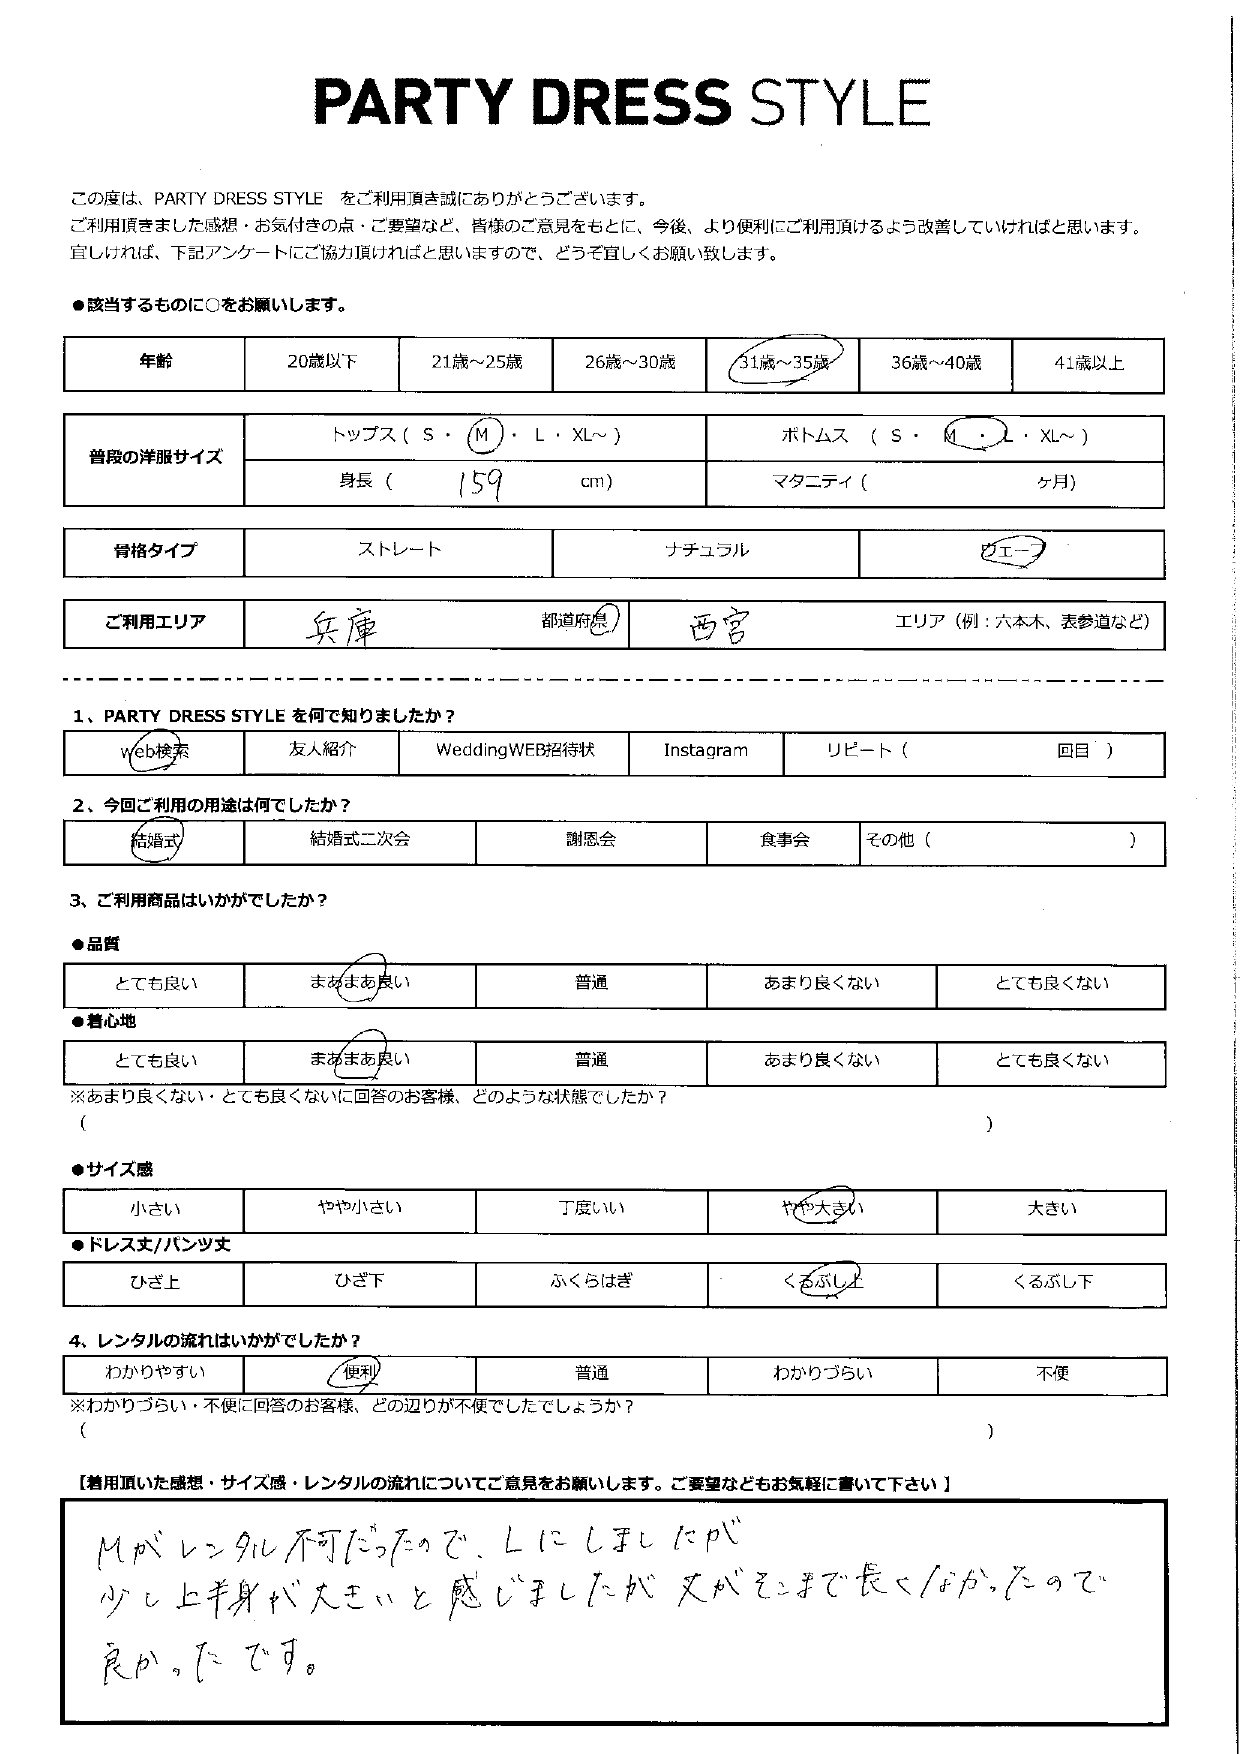 PARTY DRESS STYLE
この度は、PARTY DRESS STYLE　をご利用頂き誠にありがとうございます。
ご利用頂きました感想・お気付きの点・ご要望など、皆様のご意見をもとに、今後、より便利にご利用頂けるよう改善していければと思います。
宜しければ、下記アンケートにご協力頂ければと思いますので、どうぞ宜しくお願い致します。
●該当するものに○をお願いします。
年齢 20歳以下 21歳～25歳 26歳～30歳 31歳～35歳 36歳～40歳 41歳以上
普段の洋服サイズ トップス ( S ・ M ・ L ・ XL～ ) ボトムス ( S ・ M ・ L ・ XL～ )
身長 ( 159 cm) マタニティ ( ヶ月)
骨格タイプ ストレート ナチュラル ウェーブ
ご利用エリア 兵庫 都道府県 西宮 エリア（例：六本木、表参道など）
1、PARTY DRESS STYLE を何で知りましたか？
web検索 友人紹介 WeddingWEB招待状 Instagram リピート ( 回目 )
2、今回ご利用の用途は何でしたか？
結婚式 結婚式二次会 謝恩会 食事会 その他 ( )
3、ご利用商品はいかがでしたか？
●品質
とても良い まあまあ良い 普通 あまり良くない とても良くない
●着心地
とても良い まあまあ良い 普通 あまり良くない とても良くない
※あまり良くない・とても良くないに回答のお客様、どのような状態でしたか？
( )
●サイズ感
小さい やや小さい 丁度いい やや大きい 大きい
●ドレス丈/パンツ丈
ひざ上 ひざ下 ふくらはぎ くるぶし上 くるぶし下
4、レンタルの流れはいかがでしたか？
わかりやすい 便利 普通 わかりづらい 不便
※わかりづらい・不便に回答のお客様、どの辺りが不便でしたでしょうか？
( )
【着用頂いた感想・サイズ感・レンタルの流れについてご意見をお願いします。ご要望などもお気軽に書いて下さい 】
Mがレンタル不可だったので、Lにしましたが
少し上半身が大きいと感じましたが丈がそこまで長くなかったので
良かったです。